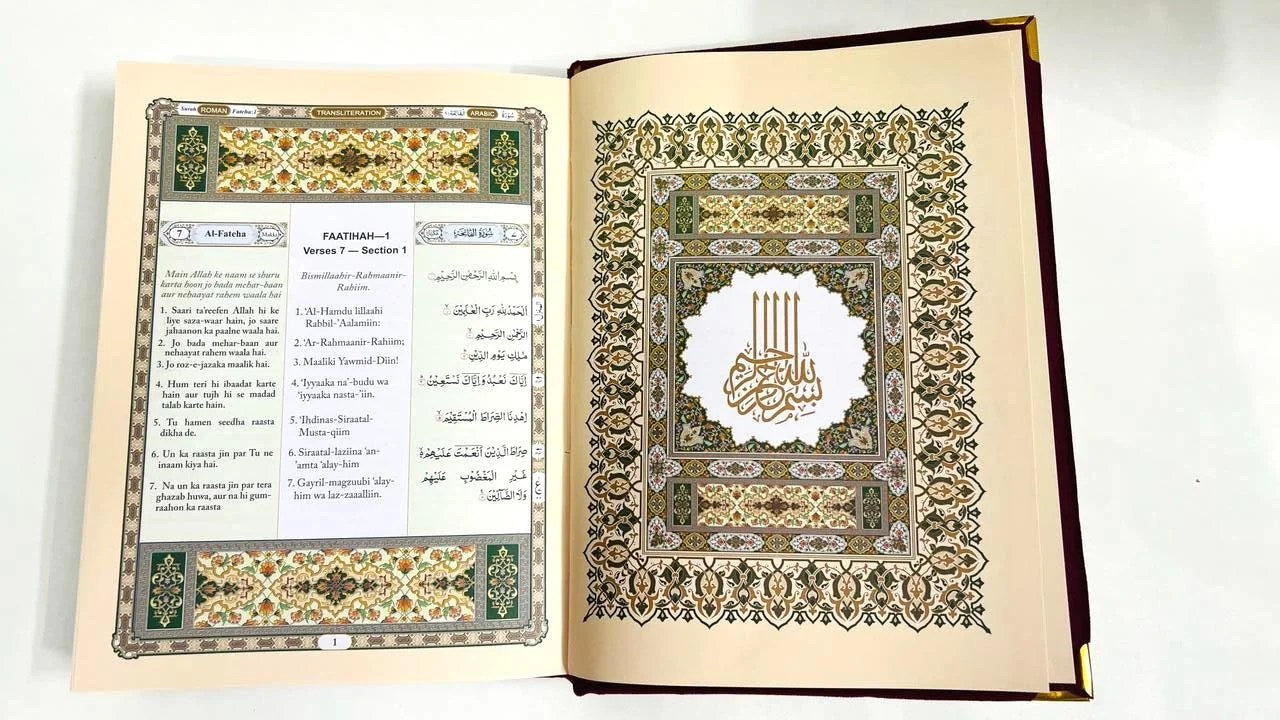 Surah ROMAN Fateha:1
TRANSLITERATION
الفاتحة ١ ARABIC سُوْرَة
7 Al-Fateha Makki
Main Allah ke naam se shuru
karta hoon jo bada mehar-baan
aur nehaayat rahem waala hai
1. Saari ta'reefen Allah hi ke
liye saza-waar hain, jo saare
jahaanon ka paalne waala hai.
2. Jo bada mehar-baan aur
nehaayat rahem waala hai.
3. Jo roz-e-jazaka maalik hai.
4. Hum teri hi ibaadat karte
hain aur tujh hi se madad
talab karte hain.
5. Tu hamen seedha raasta
dikha de.
6. Un ka raasta jin par Tu ne
inaam kiya hai.
7. Na un ka raasta jin par tera
ghazab huwa, aur na hi gum-
raahon ka raasta
FAATIHAH—1
Verses 7 — Section 1
Bismillaahir-Rahmaanir-
Rahiim.
1. ‘Al-Hamdu lillaahi
Rabbil-‘Aalamiin:
2. ‘Ar-Rahmaanir-Rahiim;
3. Maaliki Yawmid-Diin!
4. ‘Iyyaaka na‘-budu wa
‘iyyaaka nasta-‘iin.
5. ‘Ihdinas-Siraatal-
Musta-qiim
6. Siraatal-laziina ‘an-
‘amta ‘alay-him
7. Gayril-magzuubi ‘alay-
him wa laz-zaaalliin.
سُوْرَةُ الْفَاتِحَةِ
بِسْمِ اللّٰهِ الرَّحْمٰنِ الرَّحِيْمِ
اَلْحَمْدُ لِلّٰهِ رَبِّ الْعٰلَمِيْنَ
الرَّحْمٰنِ الرَّحِيْمِ
مٰلِكِ يَوْمِ الدِّيْنِ
اِيَّاكَ نَعْبُدُ وَاِيَّاكَ نَسْتَعِيْنُ
اِهْدِنَا الصِّرَاطَ الْمُسْتَقِيْمَ
صِرَاطَ الَّذِيْنَ اَنْعَمْتَ عَلَيْهِمْ
غَيْرِ الْمَغْضُوْبِ عَلَيْهِمْ
وَلَا الضَّآلِّيْنَ
ع
1
بسم الله الرحمن الرحيم